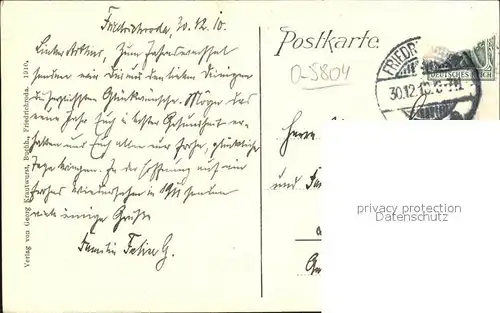 Friedrichroda, 30.12.10.
Postkarte.
0-5804
Lieber Arthur, Zum Jahreswechsel
senden wir Dir und den lieben Deinigen
die herzlichsten Glückwünsche. Möge das
neue Jahr Euch in bester Gesundheit er-
halten und Euch allen nur frohe, glückliche
Tage bringen. In der Hoffnung auf ein
frohes Wiedersehen in 1911 senden
wir innige Grüße
Familie
Verlag von Georg Krautwurst, Buchh., Friedrichroda. 1910.
FRIEDR
30.12.10
DEUTSCHES REICH
Herrn
und
privacy protection
Datenschutz